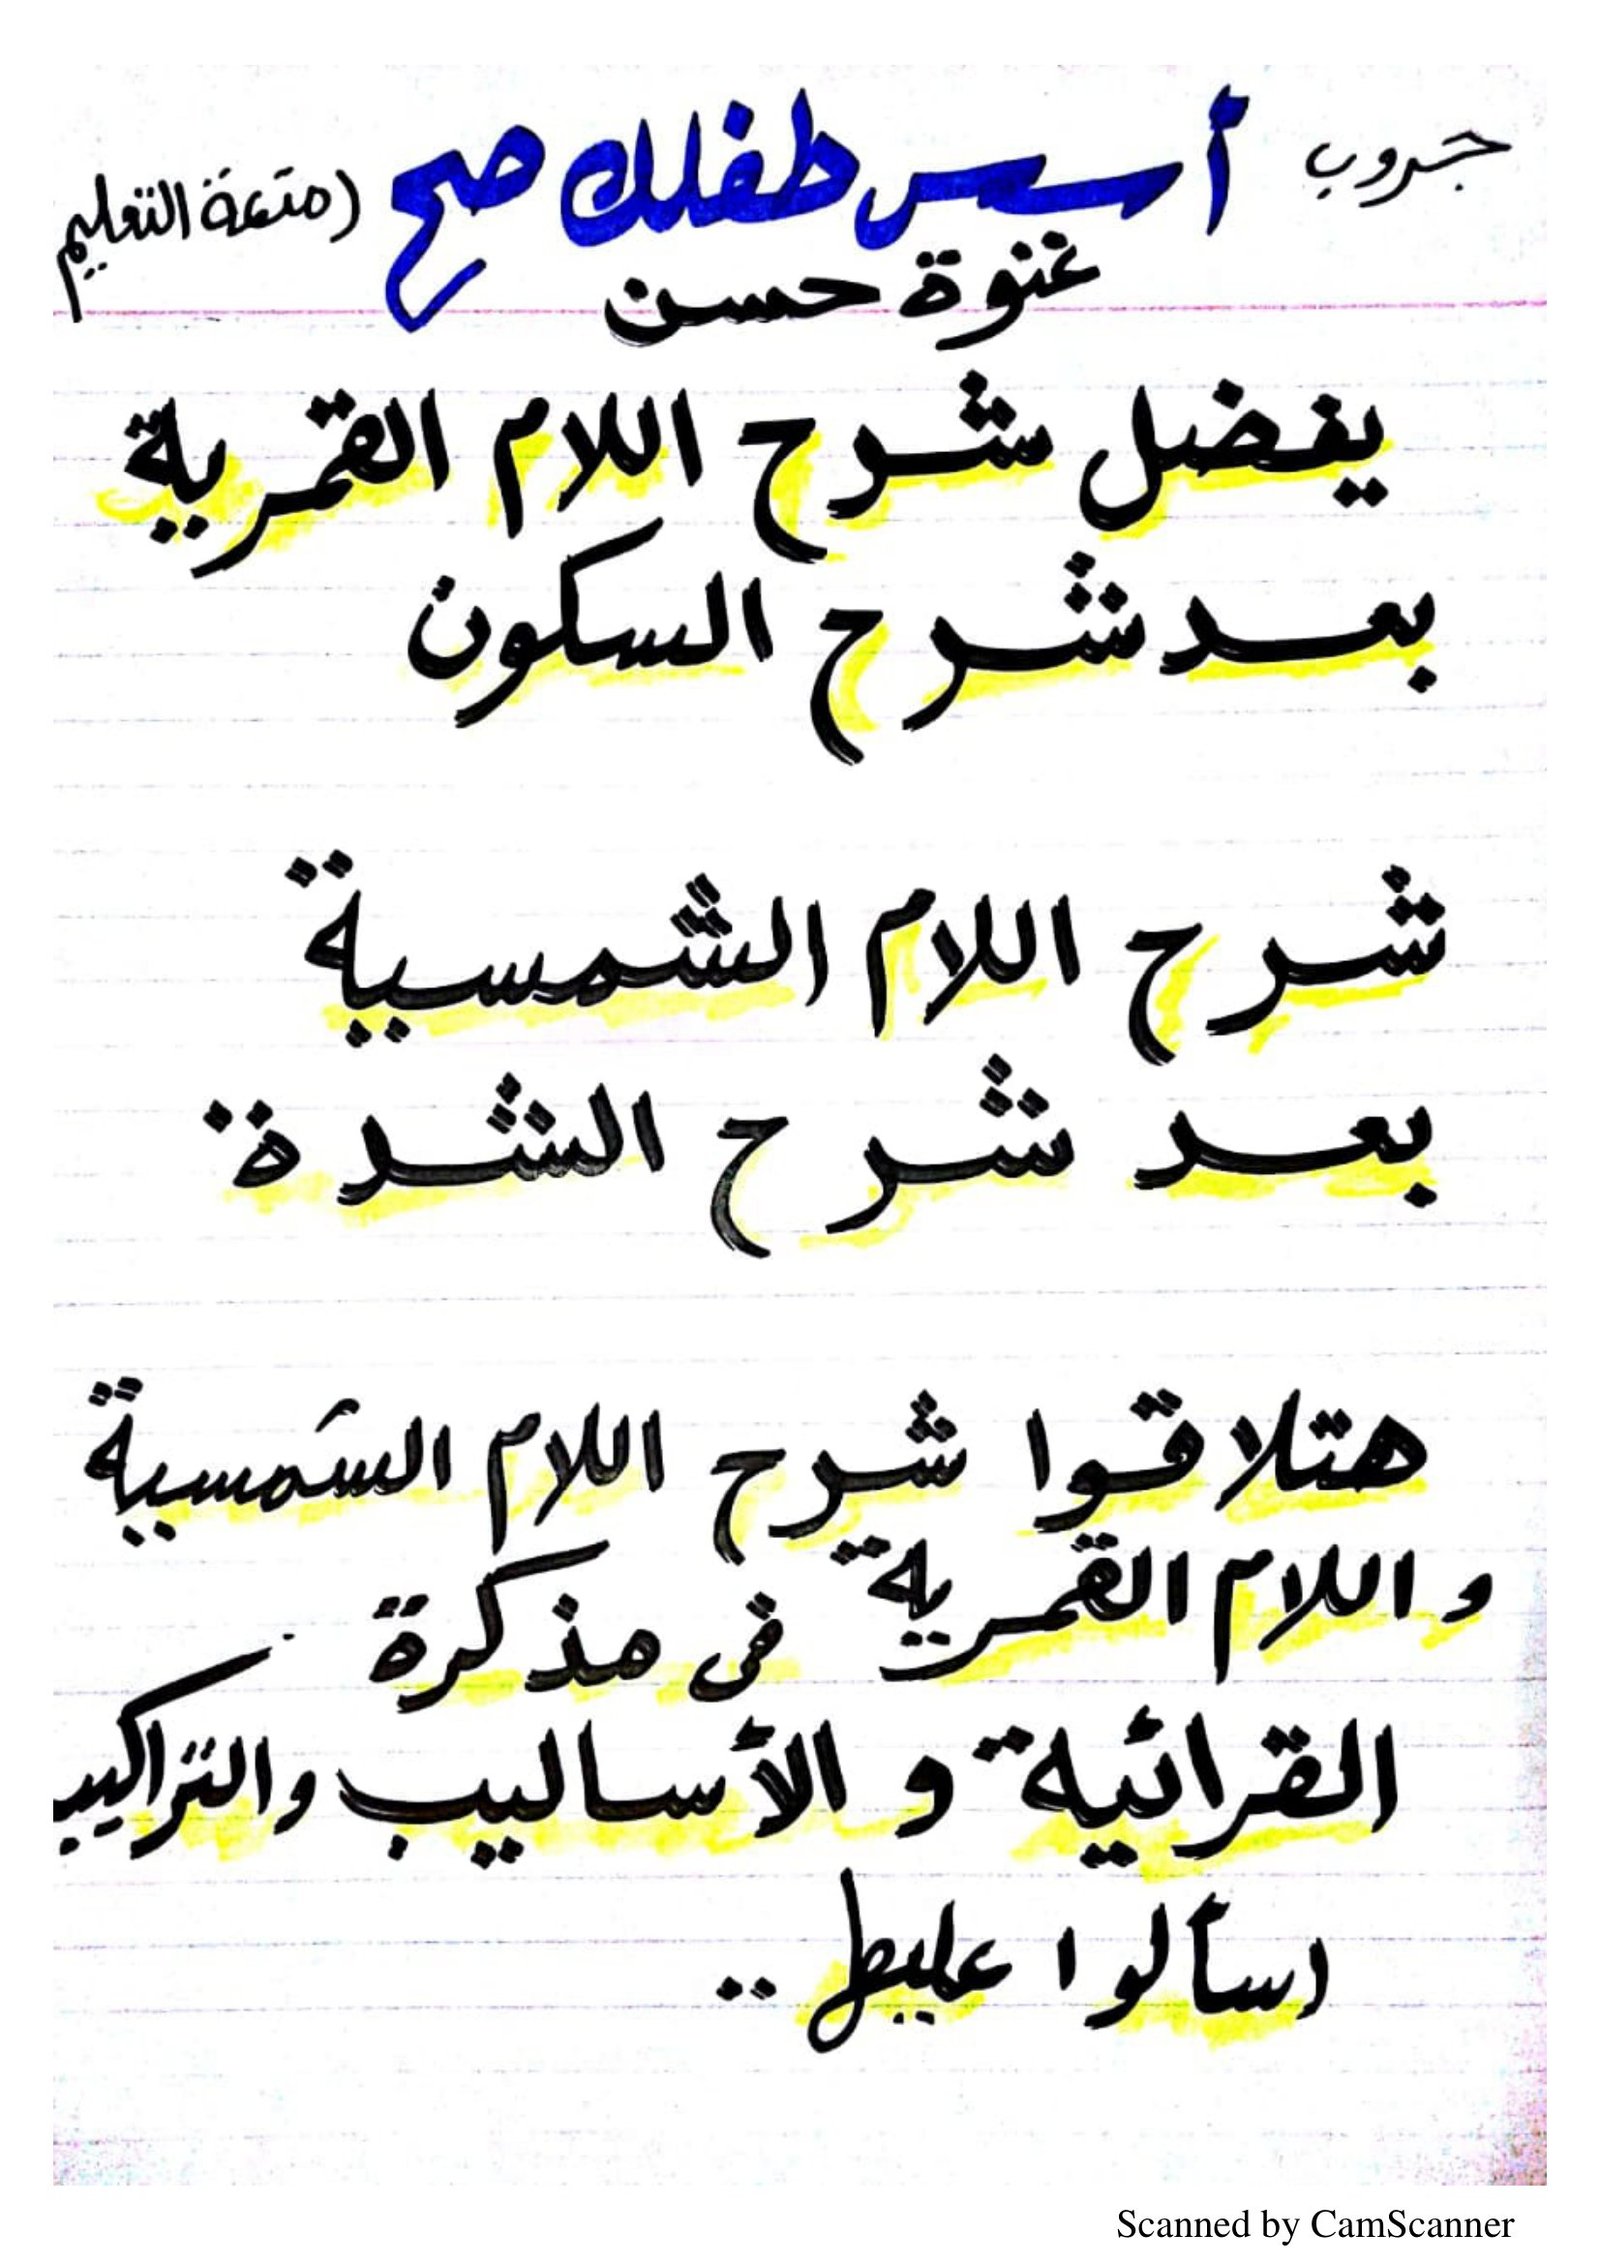 جروب أسس طفلك صح (متعة التعليم
غنوة حسن
يفضل شرح اللام القمرية
بعد شرح السكون
شرح اللام الشمسية
بعد شرح الشدة
هتلاقوا شرح اللام الشمسية
و اللام القمرية فى مذكرة
القرائية و الأساليب والتراكيب
اسألوا عليها ..
Scanned by CamScanner